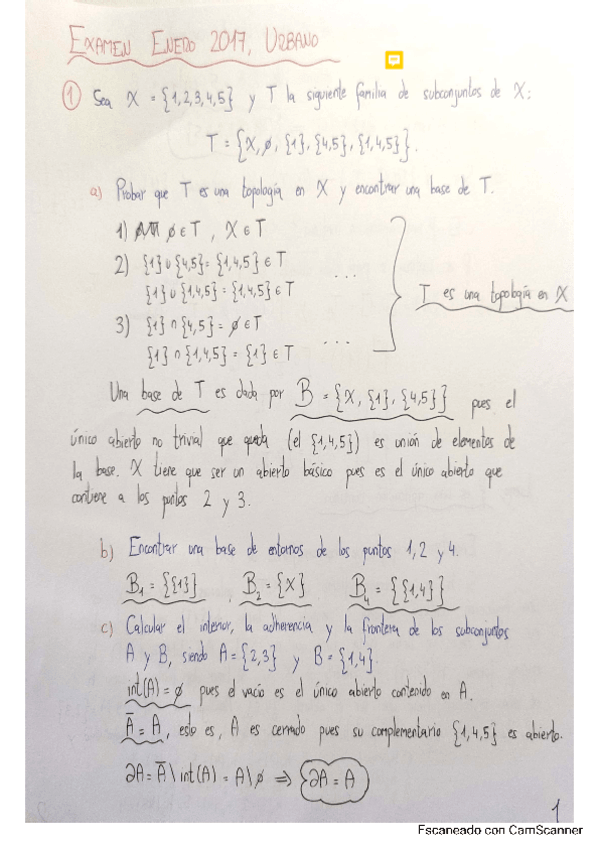 EXAMEN ENERO 2017, URBANO
1 Sea X = {1,2,3,4,5} y T la siguiente familia de subconjuntos de X:
T = {X, ∅, {1}, {4,5}, {1,4,5}}.
a) Probar que T es una topología en X y encontrar una base de T.
1) ∅ ∈ T , X ∈ T
2) {1} ∪ {4,5} = {1,4,5} ∈ T
...
{1} ∪ {1,4,5} = {1,4,5} ∈ T
T es una topología en X
3) {1} ∩ {4,5} = ∅ ∈ T
...
{1} ∩ {1,4,5} = {1} ∈ T
Una base de T es dada por B = {X, {1}, {4,5}} pues el
único abierto no trivial que queda (el {1,4,5}) es unión de elementos de
la base. X tiene que ser un abierto básico pues es el único abierto que
contiene a los puntos 2 y 3.
b) Encontrar una base de entornos de los puntos 1, 2 y 4.
B₁ = {{1}} , B₂ = {X} B₄ = {{1,4}}
c) Calcular el interior, la adherencia y la frontera de los subconjuntos
A y B, siendo A = {2,3} y B = {1,4}.
int(A) = ∅ pues el vacío es el único abierto contenido en A.
Ā = A, esto es, A es cerrado pues su complementario {1,4,5} es abierto.
∂A = Ā \ int(A) = A \ ∅ ⇒ ∂A = A
1
Escaneado con CamScanner